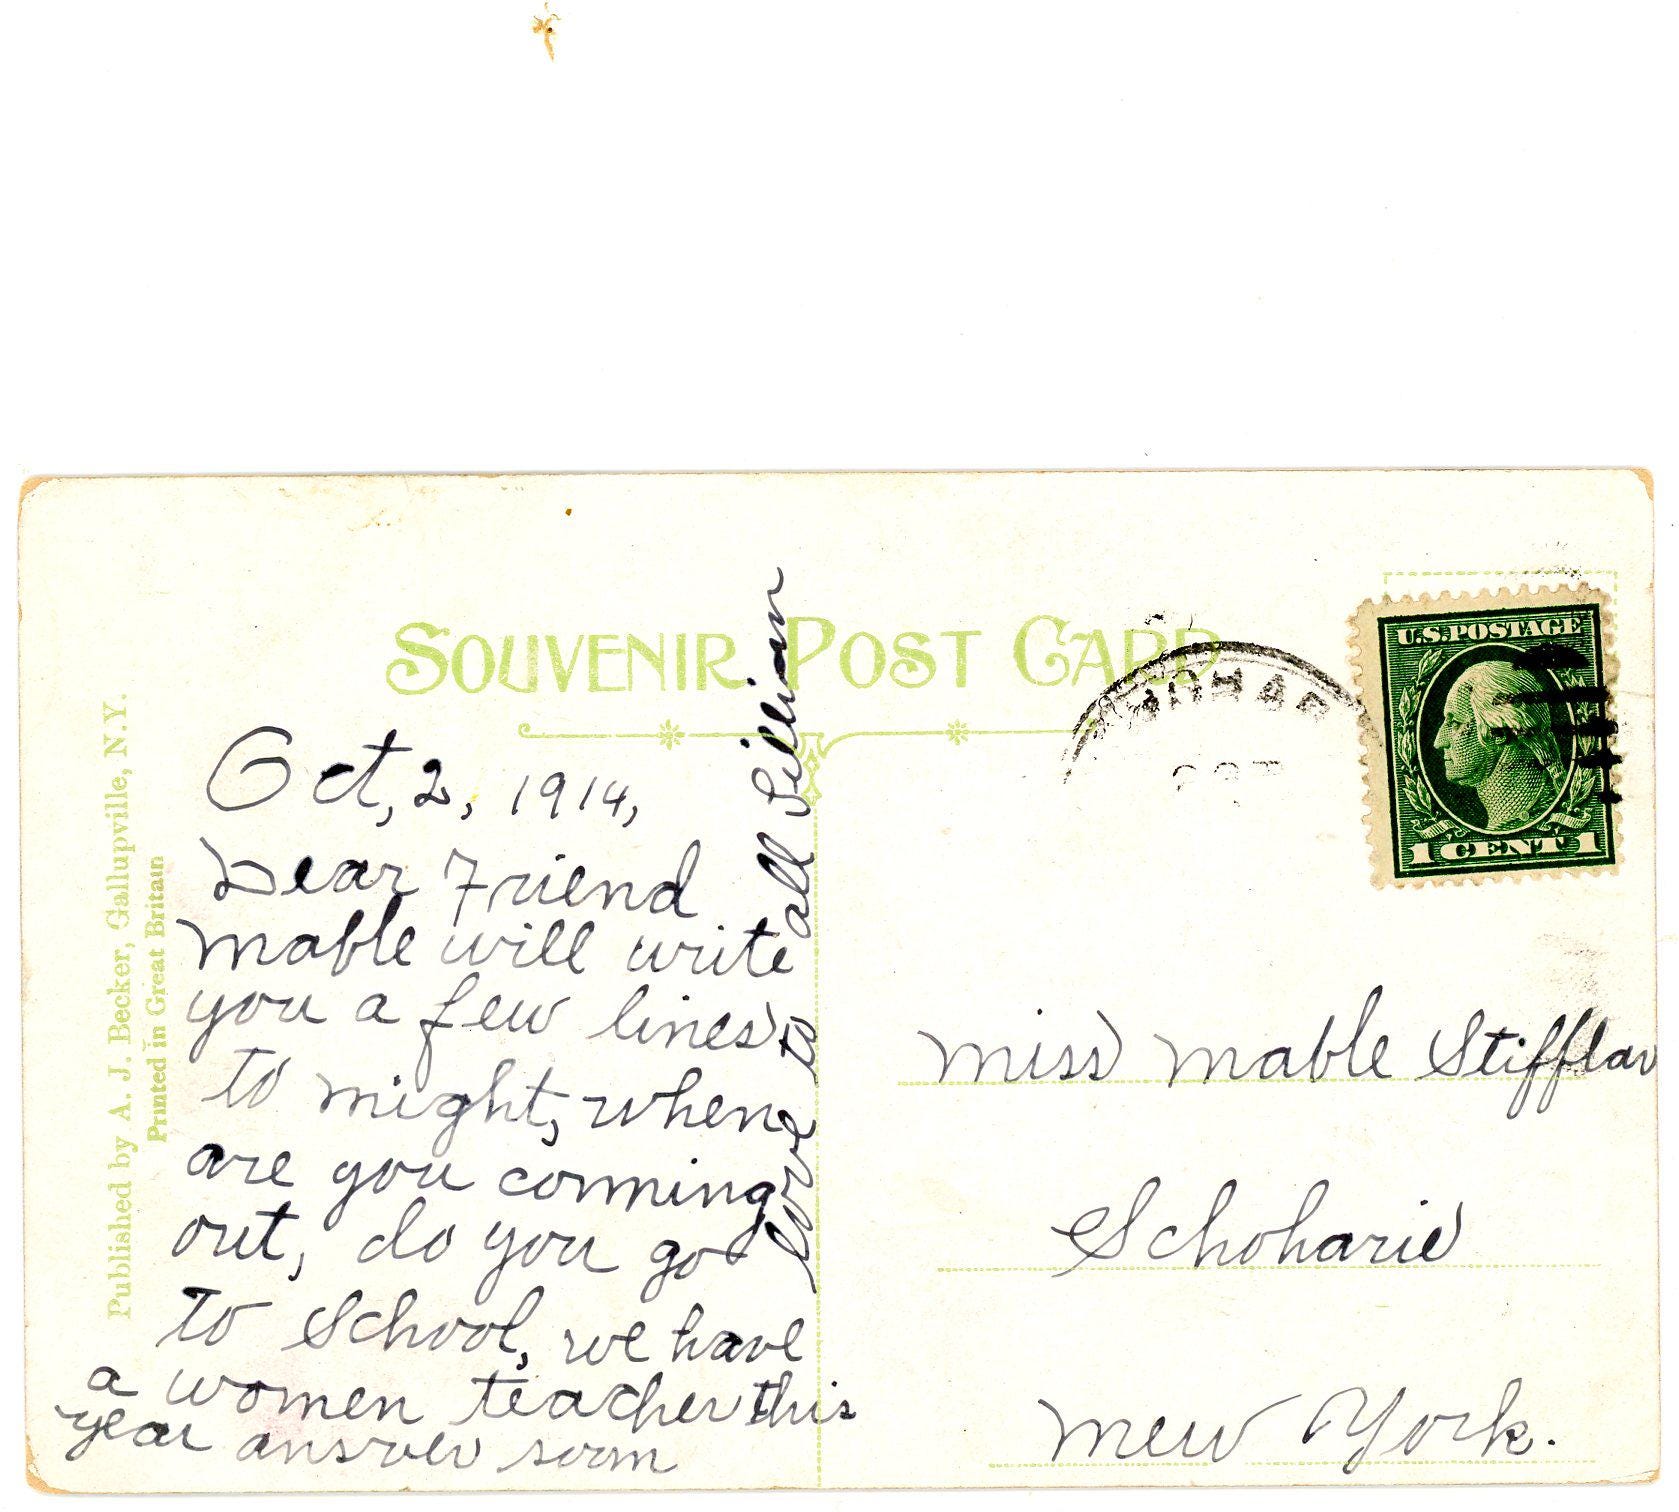 SOUVENIR POST CARD
Published by A. J. Becker, Gallupville, N.Y.
Printed in Great Britain
Oct, 2, 1914,
Dear Friend
Mable will write
you a few lines
to night, when
are you comming
out, do you go
to School, we have
a women teacher this
year answer soon
love to all Lillian
U.S. POSTAGE
1 CENT 1
Miss Mable Stifflar
Schoharie
New York.